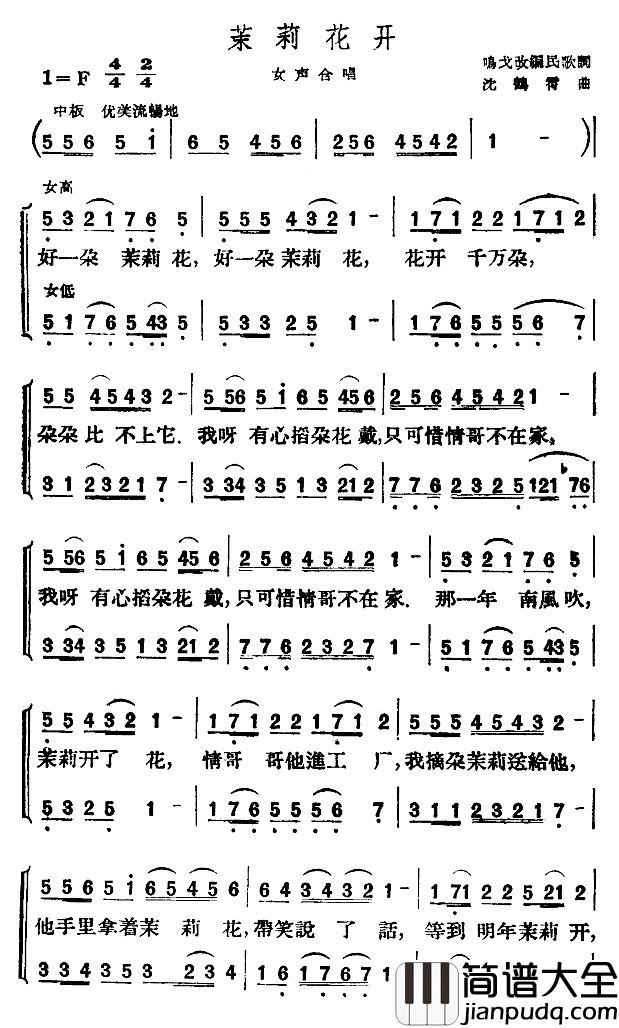 茉莉花开
1=F 4/4 2/4
女声合唱
鳴戈改編民歌詞
沈鶴霄曲
中板 优美流暢地
(5 5 6 5 i | 6 5 4 5 6 | 2 5 6 4 5 4 2 | 1 - )|
女高
5 3 2 1 7 6 5 | 5 5 5 4 3 2 1 - | 1 7 1 2 2 1 7 1 2
好一朵 茉莉花，好一朵茉莉花， 花开 千万朵，
女低
5 1 7 6 5 4 3 5 | 5 3 3 2 5 1 - | 1 7 6 5 5 5 6 7
5 5 4 5 4 3 2 - | 5 56 5 i 6 5 45 6 | 2 5 6 4 5 4 2 1 -
朵朵比不上它．我呀 有心掐朵花戴，只可惜情哥不在家。
3 1 2 3 2 1 7 - | 3 34 3 5 1 3 21 2 | 7 7 6 2 3 2 5 121 ♭76
5 56 5 i 6 5 45 6 | 2 5 6 4 5 4 2 1 - | 5 3 2 1 7 6 5
我呀 有心掐朵花戴，只可惜情哥不在家．那一年 南風吹，
3 34 3 5 1 3 21 2 | 7 7 6 2 3 2 7 1 - | 5 1 7 6 5 6 5 43 5
5 5 4 3 2 1 - | 1 7 1 2 2 1 7 1 2 | 5 5 5 4 5 4 3 2
茉莉开了花， 情哥 哥他進工厂，我摘朵茉莉送給他，
5 3 2 5 1 - | 1 7 6 5 5 5 5 6 7 | 3 1 1 2 3 2 1 7
5 5 6 5 i 6 5 4 5 6 | 6 4 3 4 3 2 1 - | 1 71 2 2 5 21 2
他手里拿着茉莉花，帶笑說了話，等到明年茉莉开，
3 3 4 3 5 2 3 . 4 | 1 6 1 7 6 7 1
简谱大全
jianpudq.com